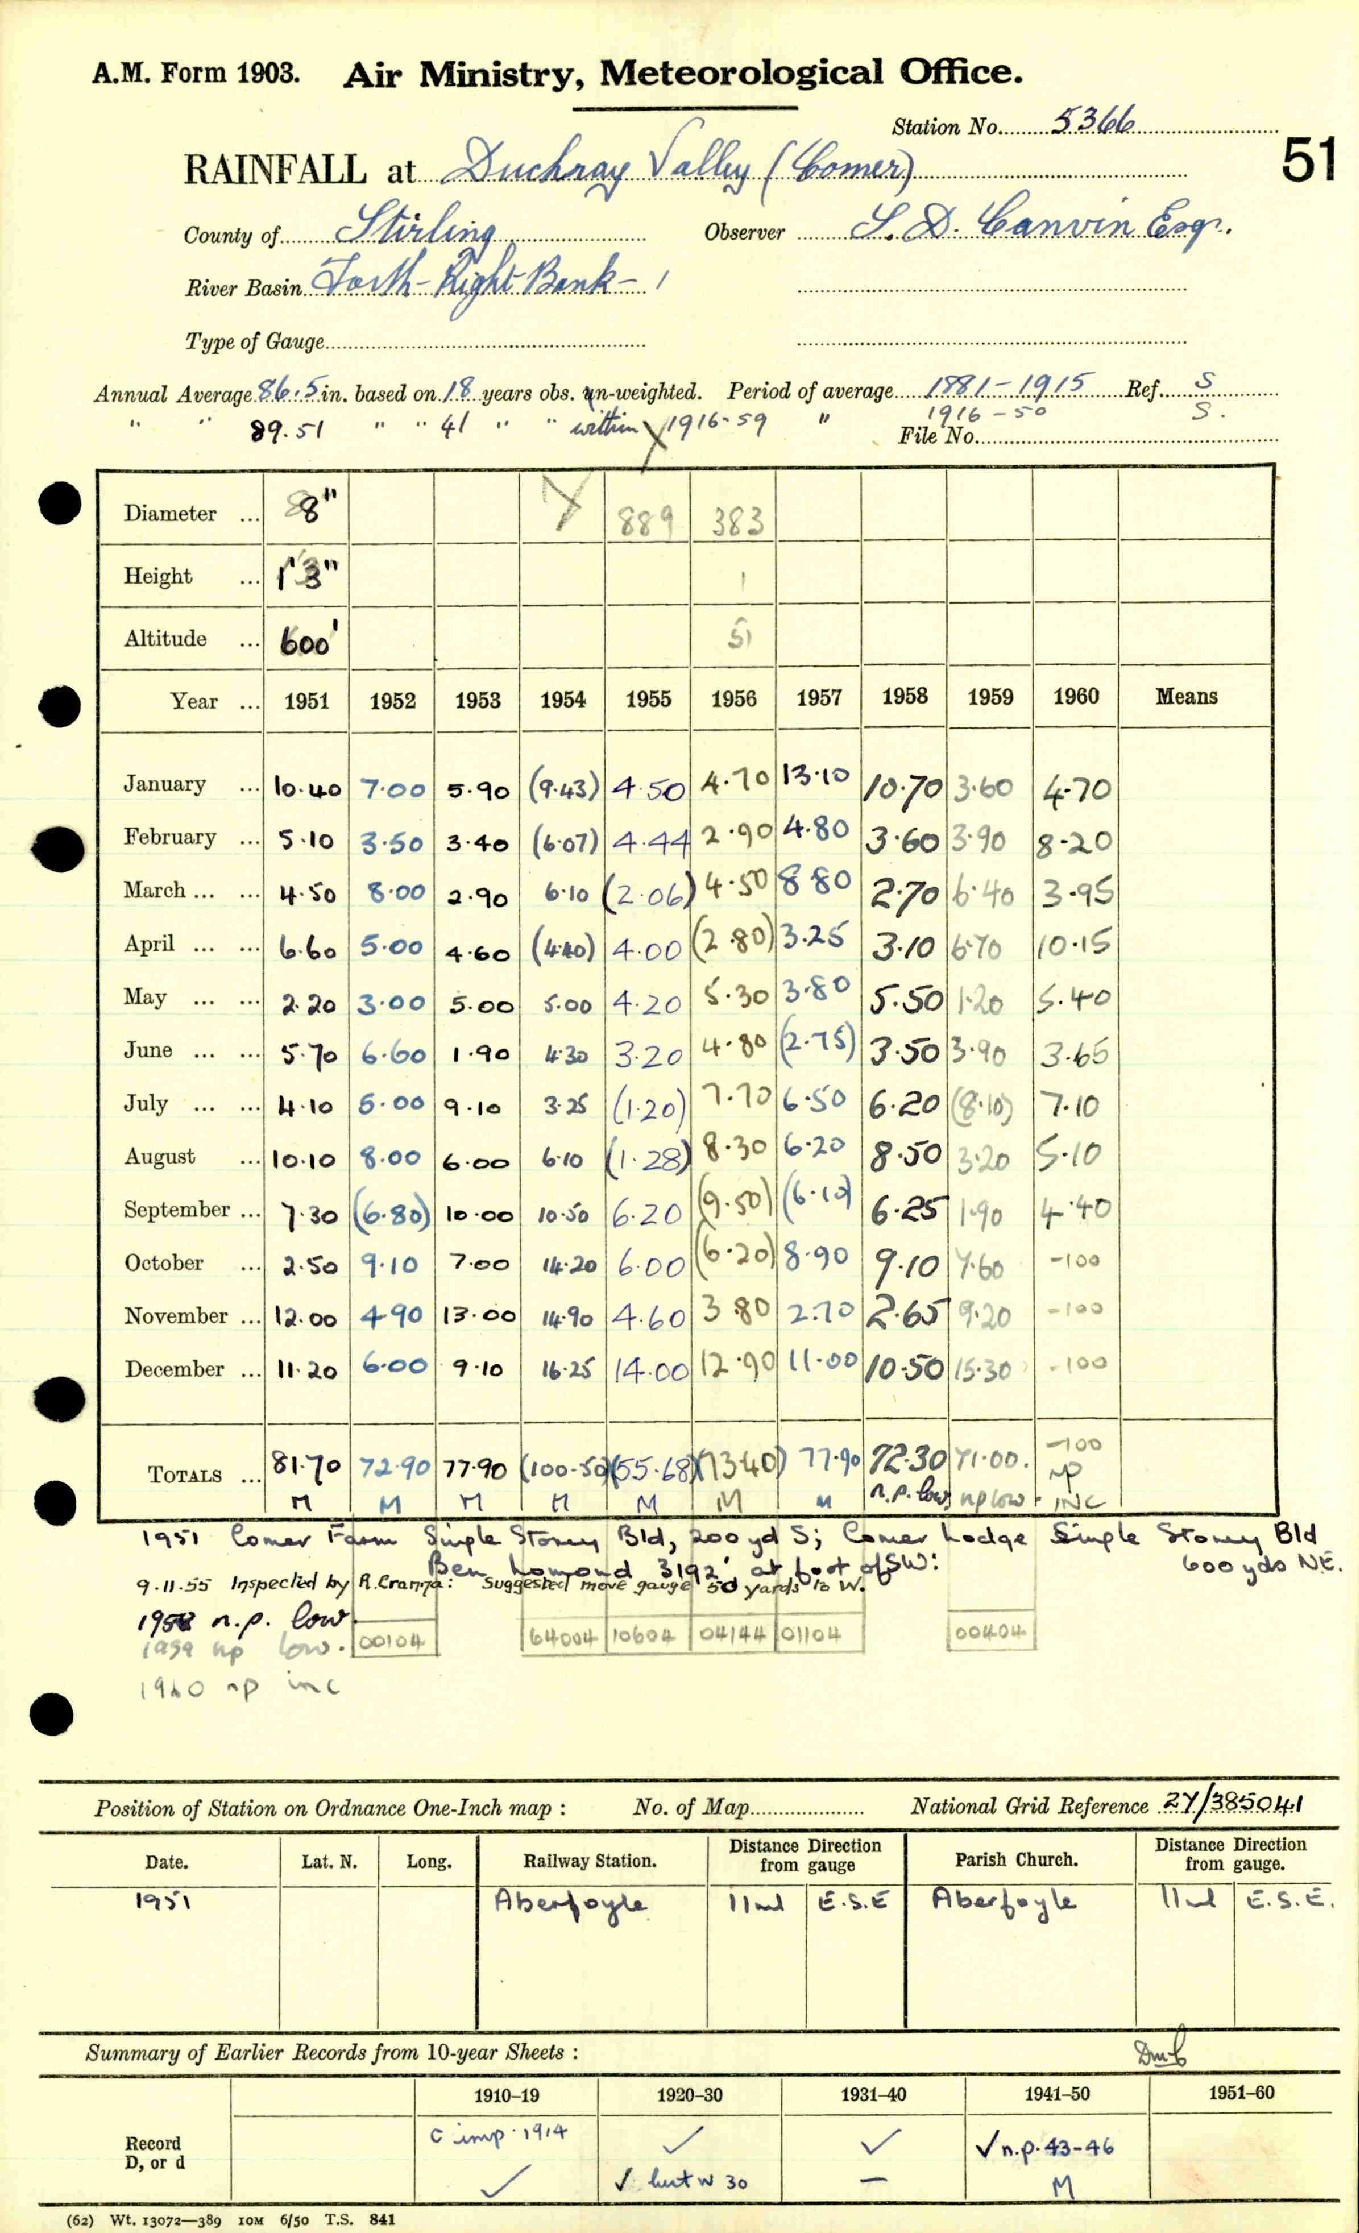 A.M. Form 1903. Air Ministry, Meteorological Office.
Station No. 5366
51
RAINFALL at Duchray Valley (Comer)
County of Stirling Observer S. D. Canvin Esqr.
River Basin Forth - Right Bank - 1
Type of Gauge
Annual Average 86.5 in. based on 18 years obs. un-weighted. Period of average 1881-1915 Ref. S
" " 89.51 " " 41 " " within 1916-59 " 1916-50 S.
File No.
Diameter ... 8" 889 383
Height ... 1'3" 1
Altitude ... 600' 51
Year ... 1951 1952 1953 1954 1955 1956 1957 1958 1959 1960 Means
January ... 10.40 7.00 5.90 (9.43) 4.50 4.70 13.10 10.70 3.60 4.70
February ... 5.10 3.50 3.40 (6.07) 4.44 2.90 4.80 3.60 3.90 8.20
March ... ... 4.50 8.00 2.90 6.10 (2.06) 4.50 8.80 2.70 6.40 3.95
April ... ... 6.60 5.00 4.60 (4.40) 4.00 (2.80) 3.25 3.10 6.70 10.15
May ... ... 2.20 3.00 5.00 5.00 4.20 5.30 3.80 5.50 1.20 5.40
June ... ... 5.70 6.60 1.90 4.30 3.20 4.80 (2.75) 3.50 3.90 3.65
July ... ... 4.10 5.00 9.10 3.25 (1.20) 7.70 6.50 6.20 (8.10) 7.10
August ... 10.10 8.00 6.00 6.10 (1.28) 8.30 6.20 8.50 3.20 5.10
September ... 7.30 (6.80) 10.00 10.50 6.20 (9.50) (6.10) 6.25 1.90 4.40
October ... 2.50 9.10 7.00 14.20 6.00 (6.20) 8.90 9.10 7.60 -100
November ... 12.00 4.90 13.00 14.90 4.60 3.80 2.70 2.65 9.20 -100
December ... 11.20 6.00 9.10 16.25 14.00 12.90 11.00 10.50 15.30 -100
TOTALS ... 81.70 72.90 77.90 (100.50) (55.68) (73.40) 77.90 72.30 71.00. -100
M M M M M M M n.p. low, np low. NP INC
1951 Comer Farm Single Storey Bld, 200 yd S; Comer Lodge Single Storey Bld 600 yds N.E.
Ben Lomond 3192' at foot of SW:
9.11.55 Inspected by R. Cranna: Suggested move gauge 50 yards to W.
1958 n.p. low
1959 np low. 00104 64004 10604 04144 01104 00404
1960 np inc
Position of Station on Ordnance One-Inch map : No. of Map National Grid Reference 27/385041
Date. Lat. N. Long. Railway Station. Distance from gauge Direction Parish Church. Distance from gauge. Direction
1951 Aberfoyle 11 ml E.S.E Aberfoyle 11 ml E.S.E.
Summary of Earlier Records from 10-year Sheets :
1910–19 1920–30 1931–40 1941–50 1951–60
Record D, or d
C imp. 1914 ✓ ✓ ✓ n.p. 43-46
✓ ✓ but W 30 — M
(62) Wt. 13072—389 10M 6/50 T.S. 841